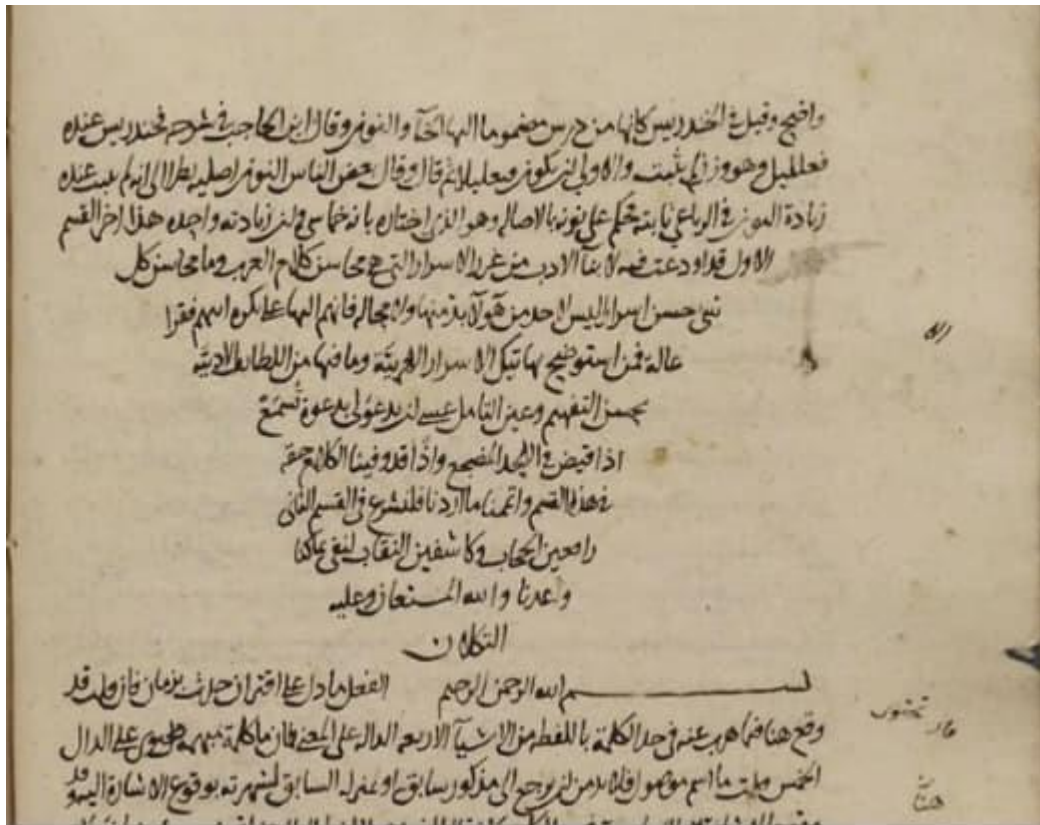 واضح وقيل في الخندريس كانها من درس مضموما اليها الخآ والنون وقال ابن الحاجب في شرحه فخندريس عنده
فعلليل وهو وزن لم يثبت والاولى ان يكون فنعليلا ثم قال وقال بعض الناس النون اصلية نظرا الى انه لم يثبت عنده
زيادة النون في الرباعي ثابتة فحكم على نونه بالاصاله وهو الذي اختاره بانه خماسي وان زيادته واحده هذا اخر القسم
الاول قد اودعت فيه لابنآ الادب من غرر الاسرار التي هي محاسن كلام العرب وما محاسن كل
شي حسن اسرار ليس لاحد من هولآ بد منها ولا محاله فانهم اليها على بكرة ابيهم فقرا
الا
عالة فمن استوضح بها تيك الاسرار العربيّة وما فيها من اللطايف الادبيّة
بحسن التفهم وعين التامل عسى ان يدعو لى بدعوة تُسمَعُ
اذا قيض في اللحد المضجع واذ قد وفينا الكلام حقه
في هذا القسم واتممنا ما اردنا فلنشرع في القسم الثاني
رافعين الحجاب وكاشفين النقاب لنفي بما كنا
واعدنا والله المستعان وعليه
التكلان
بسم الله الرحمن الرحيم الفعل ما دل على اقتران حدث بزمان فان قلت قد
وقع هنا فيما هرب عنه في حد الكلمة باللفظ من الاشيآ الاربعه الدالة على المعنى فان ما كلمة مبهمة على الدال
الخمس قلت ما اسم موصول فلا بد من ان يرجع الى مذكور سابق او بمنزلة السابق لشهرته بوقوع الاشارة اليه وقد
هنآ